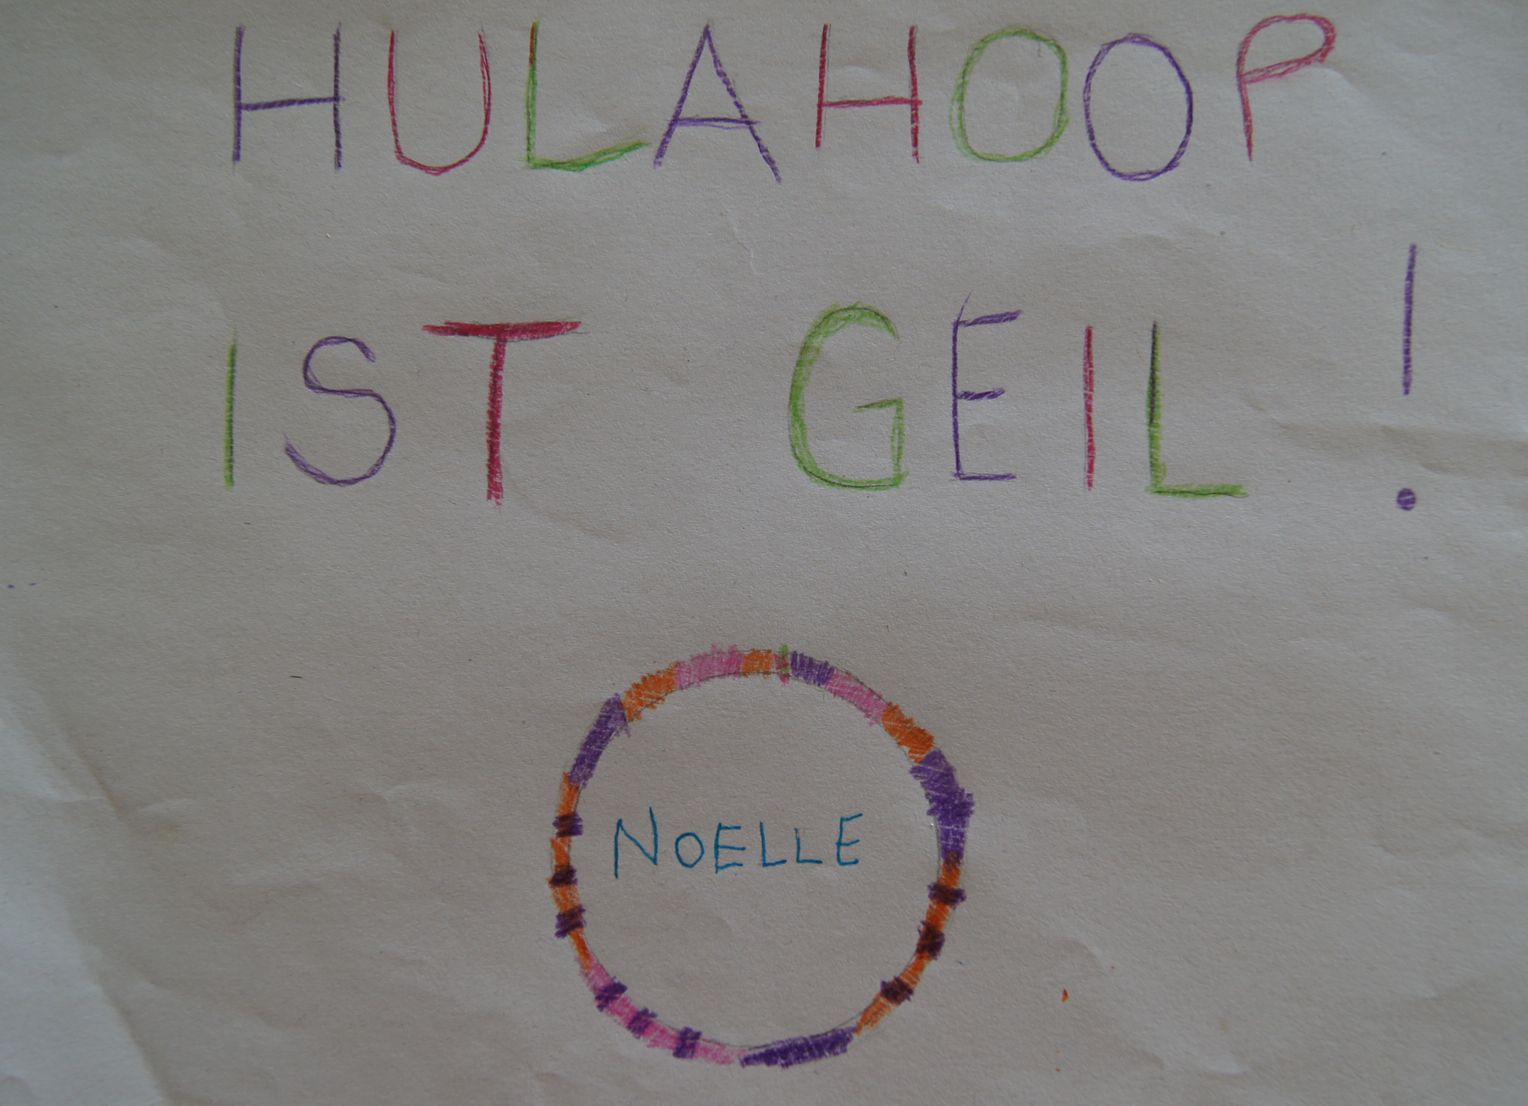 HULAHOOP
IST GEIL!
NOELLE